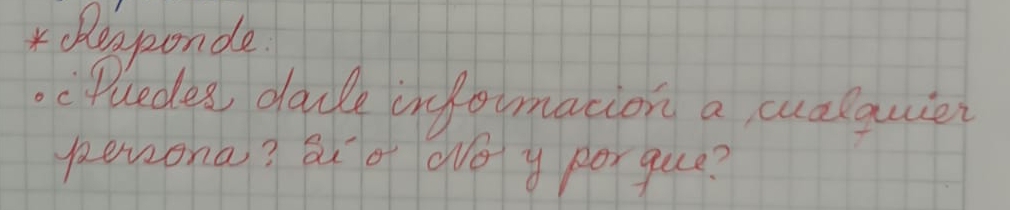 * Responde:
• ¿Puedes darle información a cualquier
persona? Sí o No y por que?